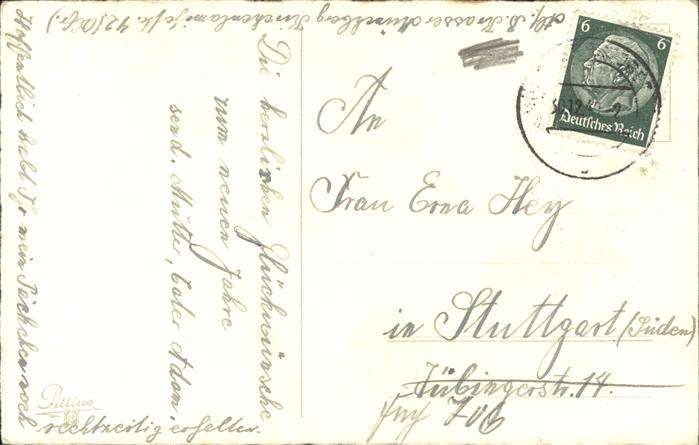 Die herzlichen Glückwünsche
zum neuen Jahre
send. Mutter, Vater Adam,
Hoffentlich habt Ihr mein Päckchen noch
rechtzeitig erhalten.
Pittius
6 6
Deutsches Reich
An
Frau Erna Hey
in Stuttgart (Süden)
Tübingerstr. 14.